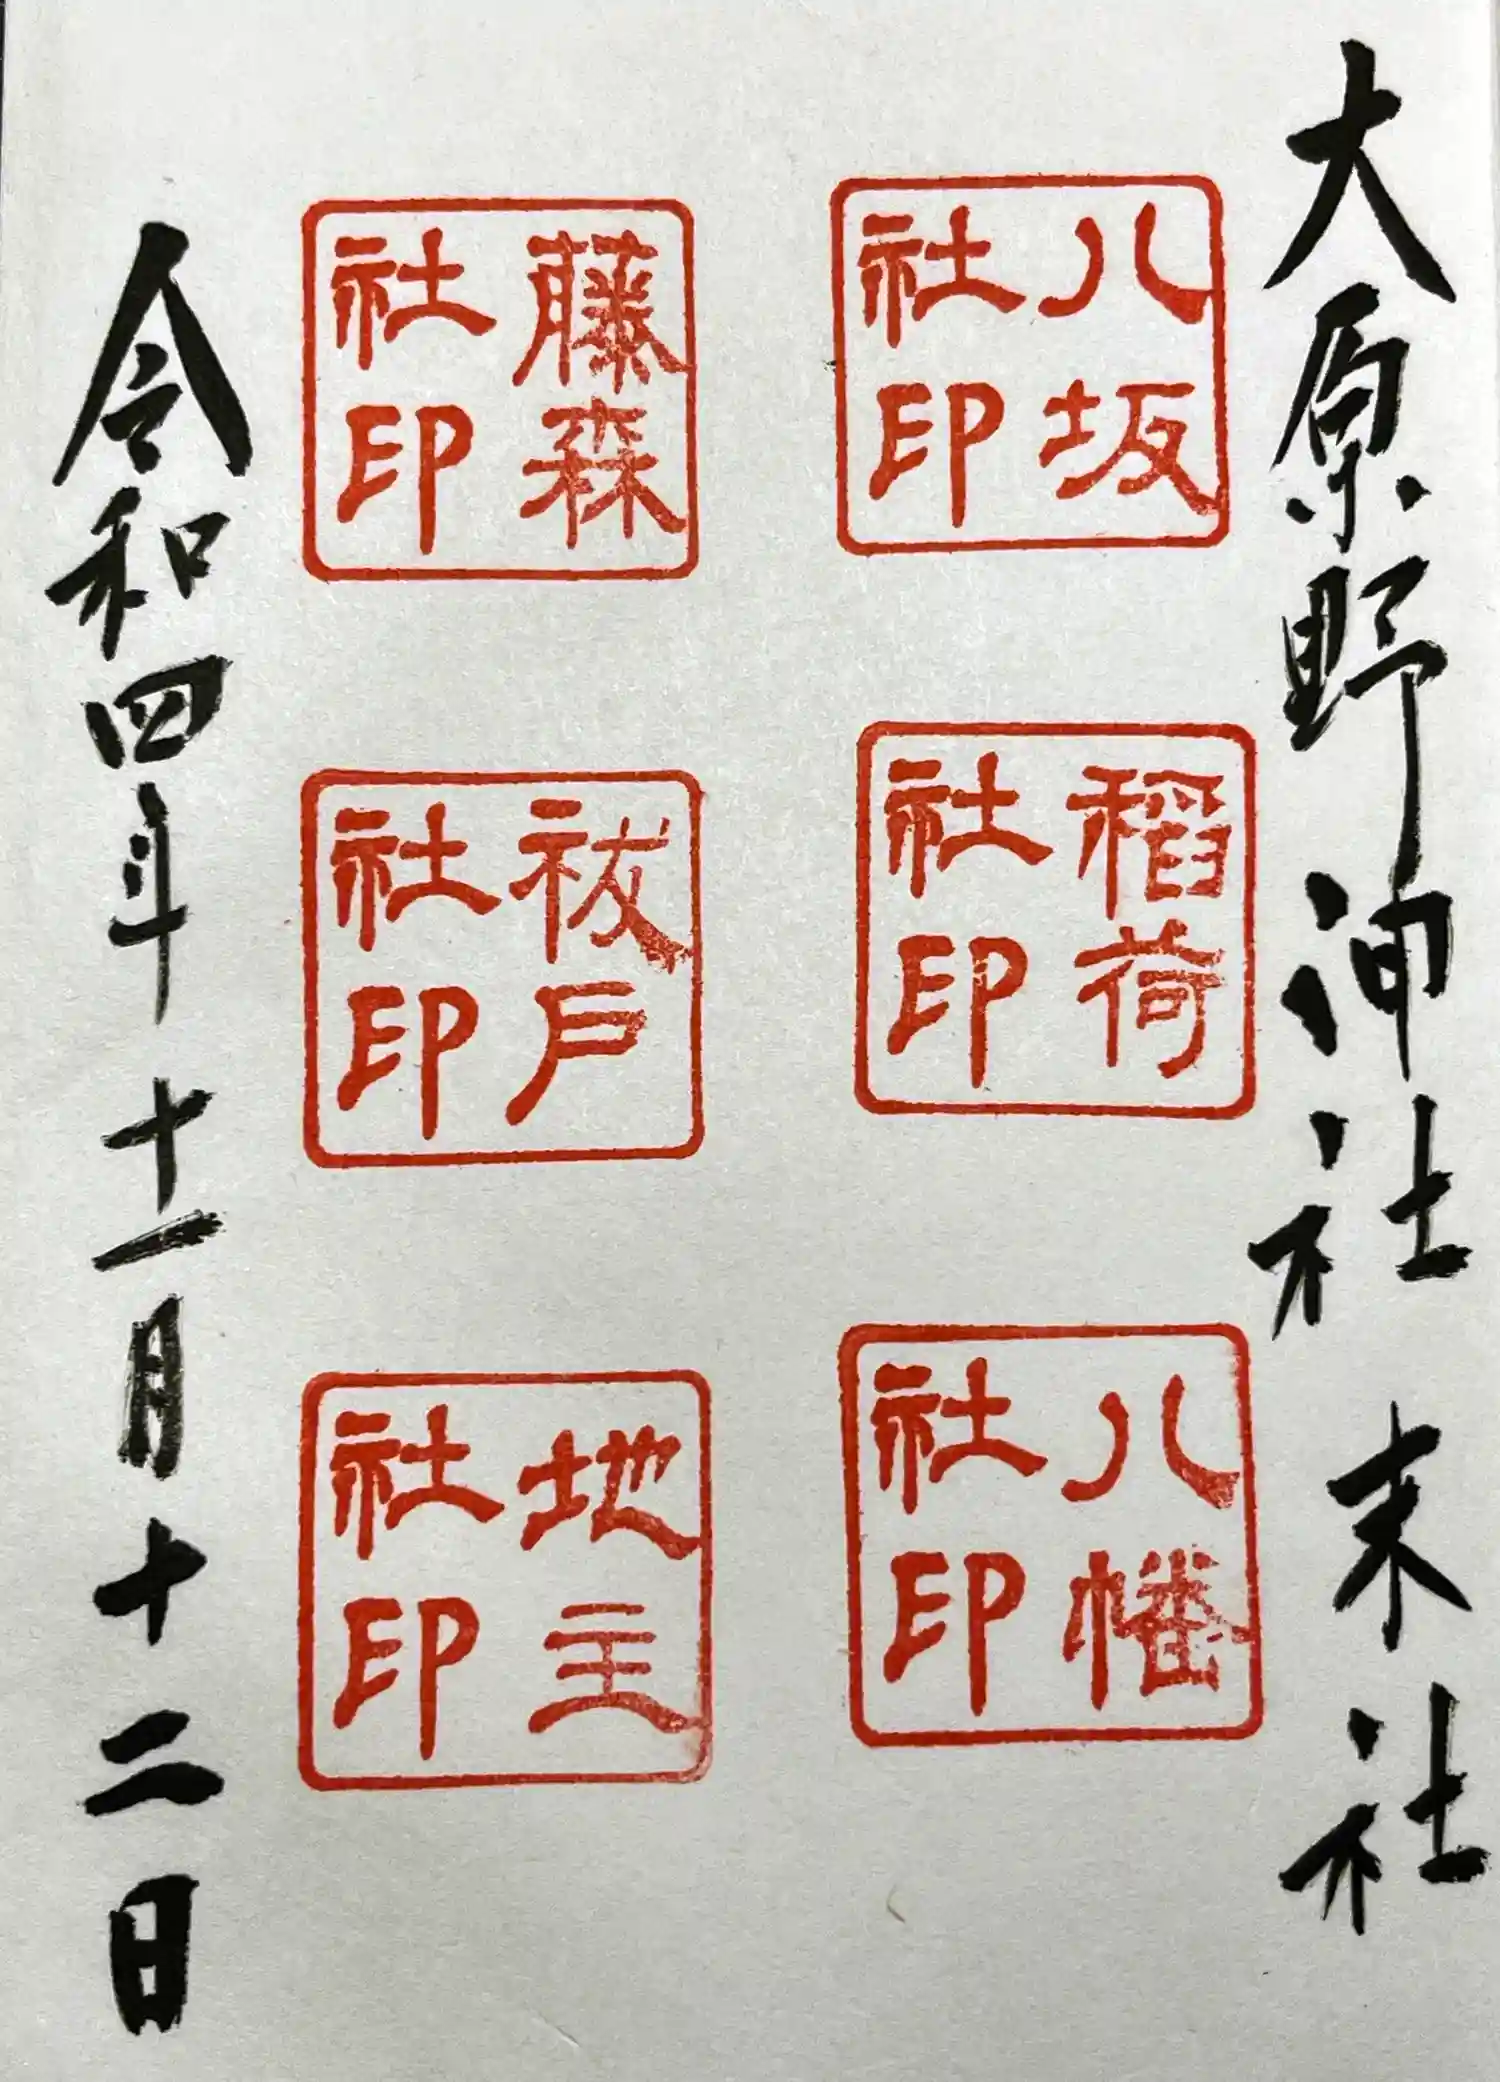 大原野神社 末社
八坂
社印
稲荷
社印
八幡
社印
藤森
社印
祓戸
社印
地主
社印
令和四年十一月十二日